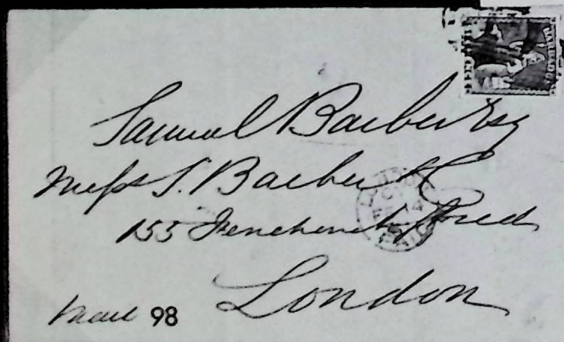 BARBADOS
Samuel Barber Esq
Messs S. Barber & Co
155 Fenchurch Street
London
98